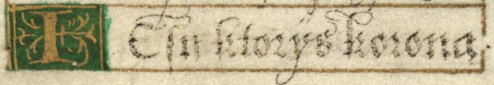 I Csn ktorys korona